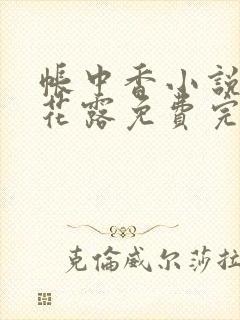 帳中香小說
花露免費完
克倫威尔莎拉